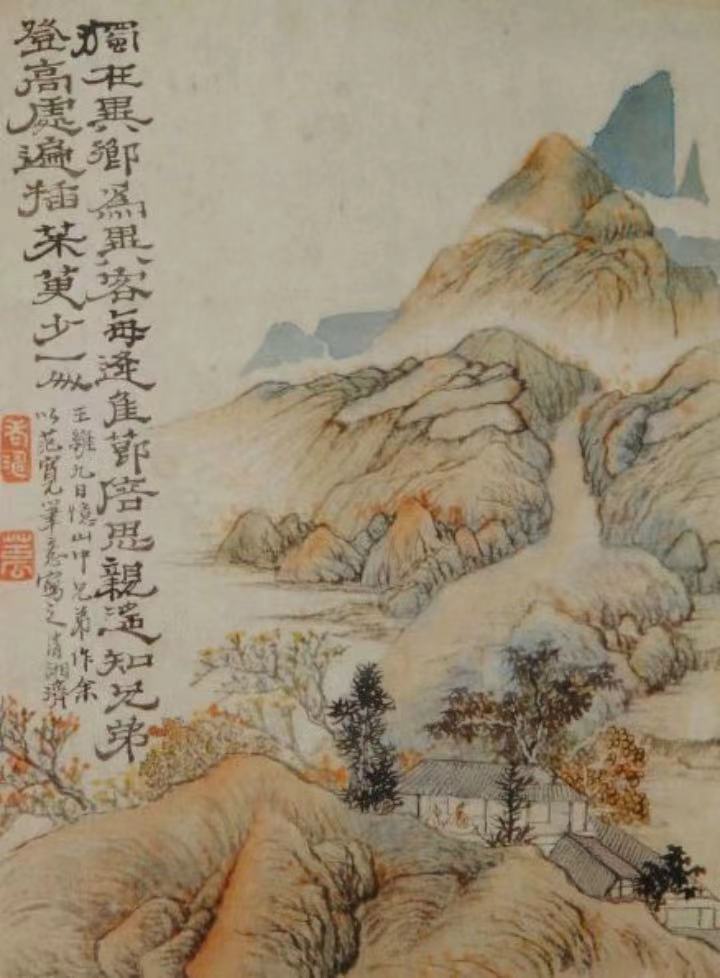 獨在異鄉為異客每逢佳節倍思親遙知兄弟
登高處遍插茱萸少一人
王維九日憶山中兄弟作余
以范寬筆意寫之清湘濟